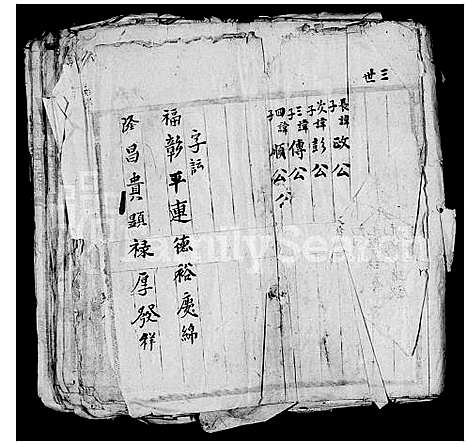 三世
長子諱政公
次子諱彭公
三子諱傳公
四子諱順公
字訣
福彰平連德裕慶綿
隆昌貴顯祿厚發祥
FamilySearch